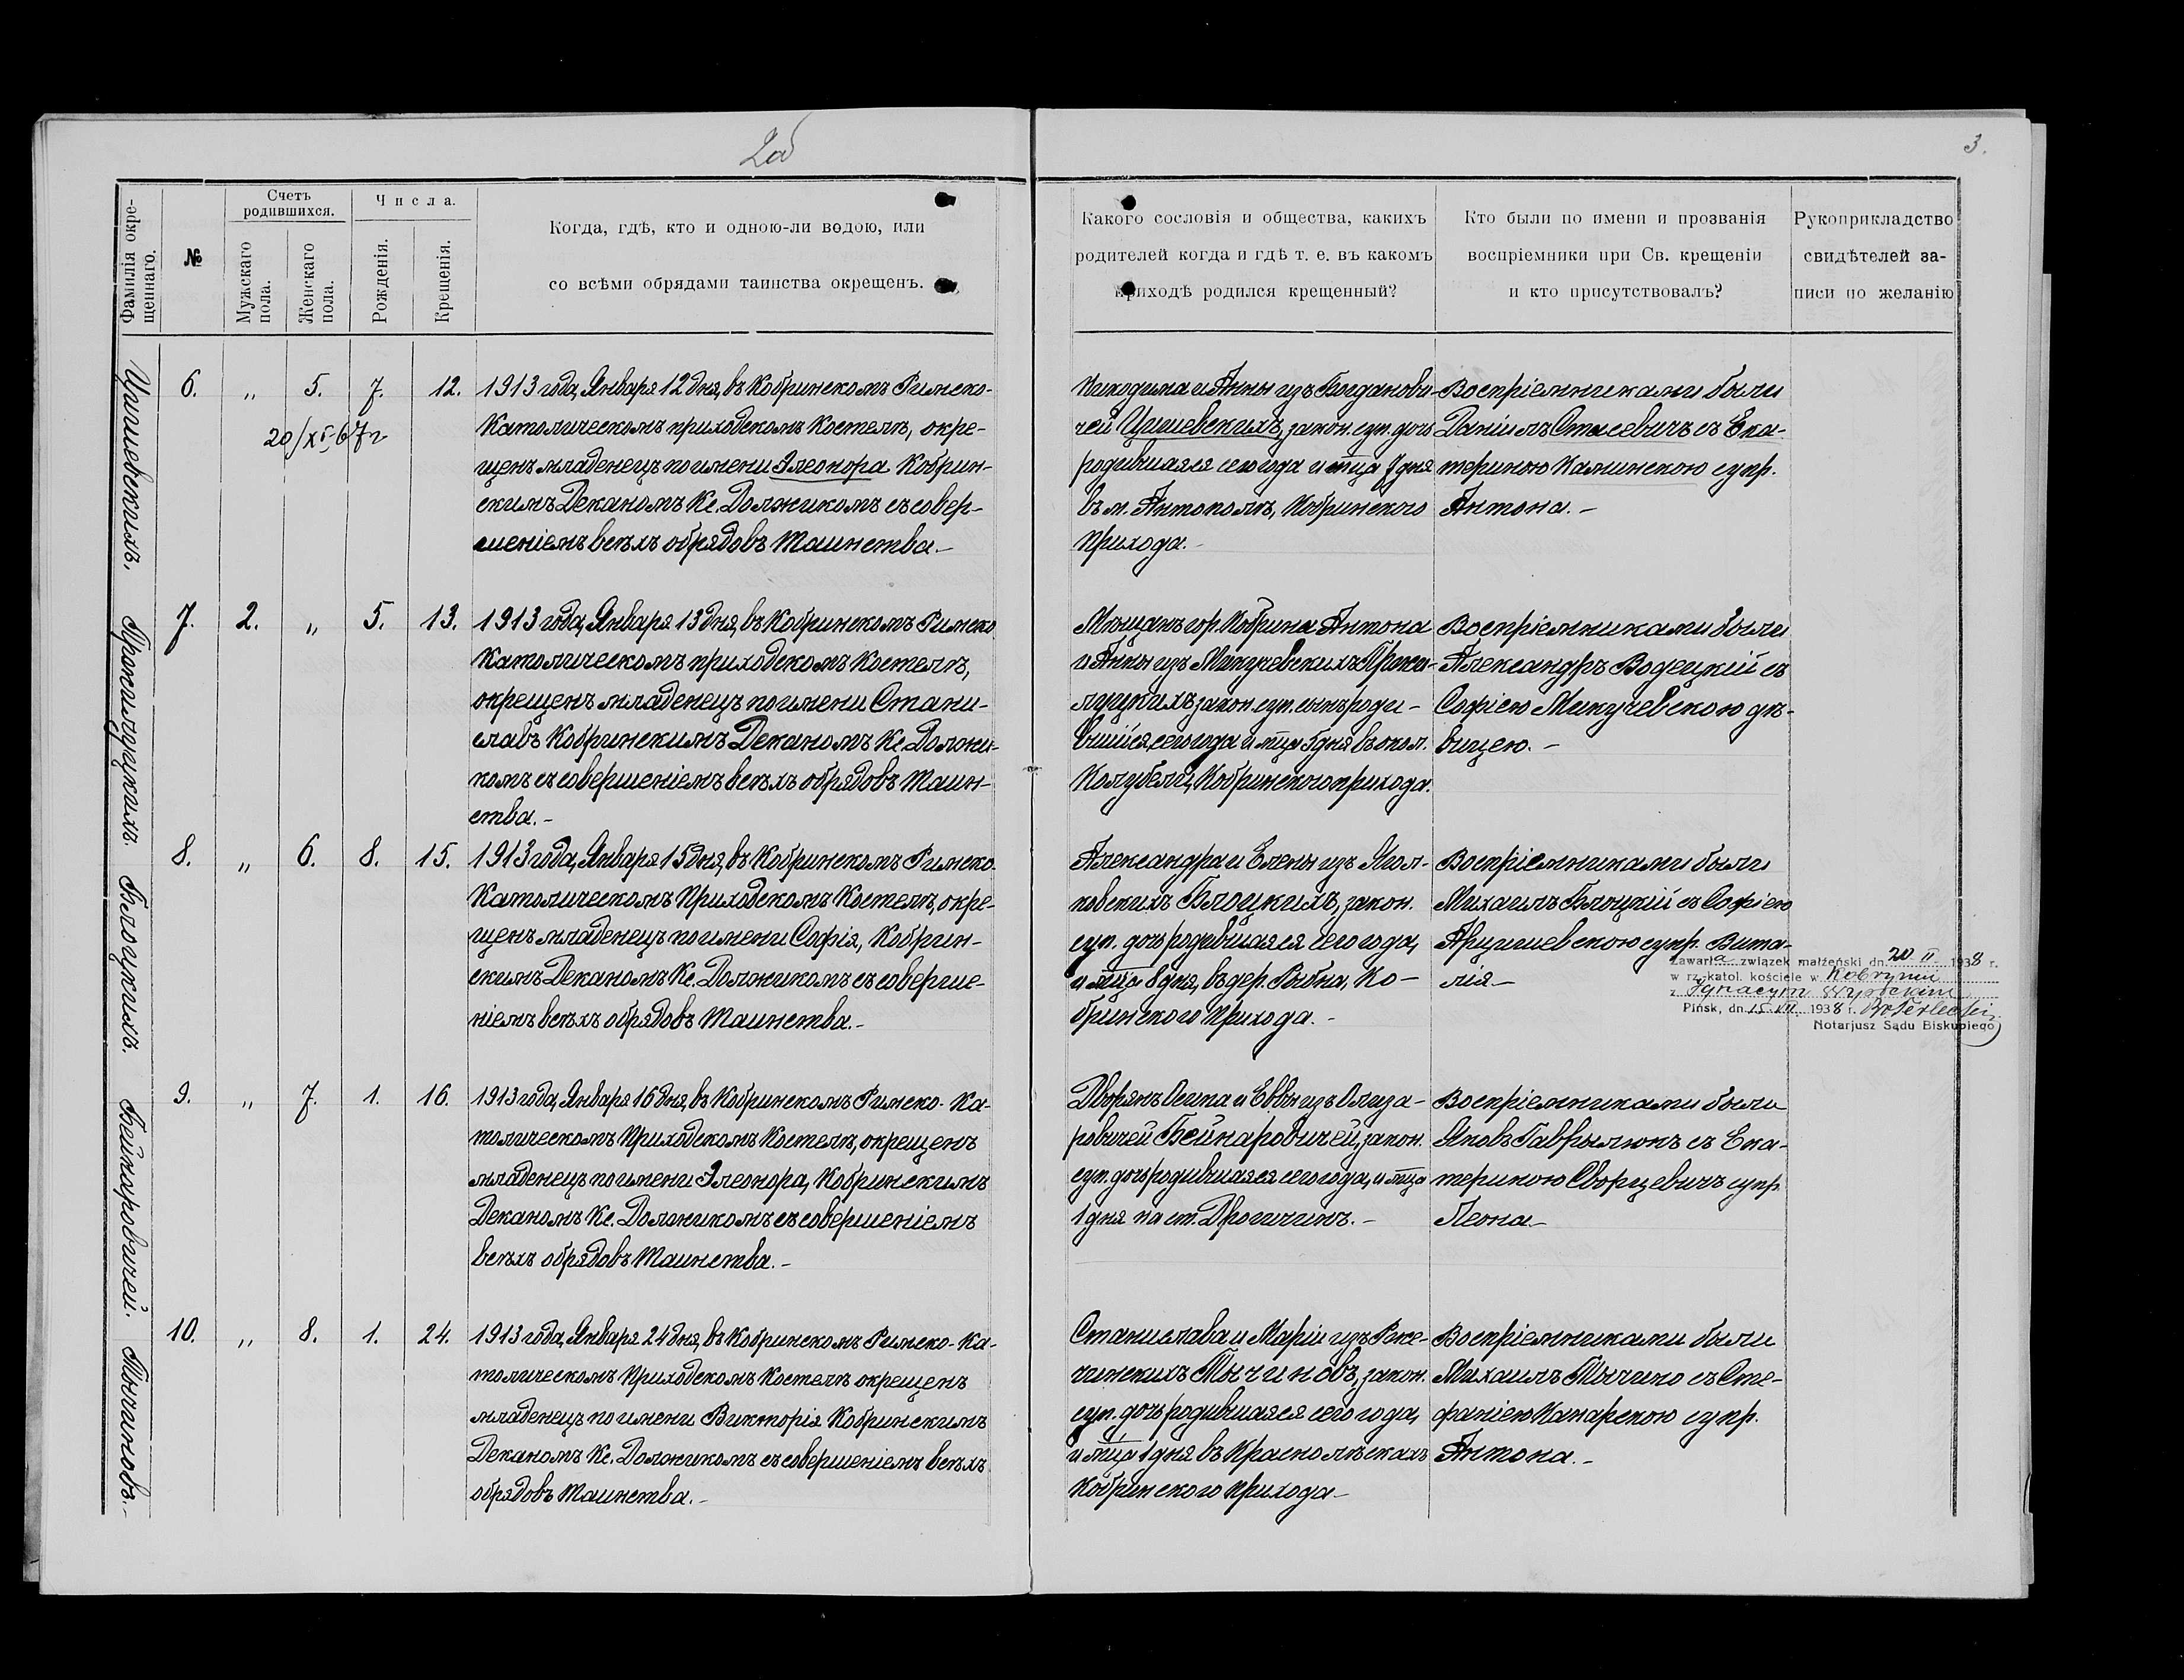 2об
3.
Фамилія окре-
щеннаго.
№
Счетъ
родившихся.
Мужскаго
пола.
Женскаго
пола.
Числа.
Рожденія.
Крещенія.
Когда, гдѣ, кто и одною-ли водою, или
со всѣми обрядами таинства окрещенъ.
Какого сословія и общества, какихъ
родителей когда и гдѣ т. е. въ какомъ
приходѣ родился крещенный?
Кто были по имени и прозванія
воспріемники при Св. крещеніи
и кто присутствовалъ?
Рукоприкладство
свидѣтелей за-
писи по желанію
6. „ 5. 7. 12.
20/XI-67г
1913 года, Января 12 дня, въ Кобринскомъ Римско-
Католическомъ приходскомъ Костелѣ, окре-
щенъ младенецъ по имени Элеонора Кобрин-
скимъ Деканомъ Кс. Должикомъ съ совер-
шеніемъ всѣхъ обрядовъ Таинства.-
Никодима и Анны изъ Богданови-
чей Цишевскихъ, закон. суп. дочь
родившаяся сего года и мца 7 дня
въ м. Антополѣ, Кобринского
прихода.-
Воспріемниками были
Даніилъ Стасевичъ съ Ека-
териною Калинскою супр.
Антона.-
Прожилуцкихъ.
7. 2. „ 5. 13.
1913 года, Января 13 дня, въ Кобринскомъ Римско
Католическомъ приходскомъ Костелѣ,
окрещенъ младенецъ по имени Стани-
славъ Кобринскимъ Деканомъ Кс. Должи-
комъ съ совершеніемъ всѣхъ обрядовъ Таин-
ства.-
Мѣщанъ гор. Кобрина Антона
и Анны изъ Микучевскихъ Прожи-
луцкихъ закон. суп. сынъ роди-
вшійся сего года и мца 5 дня въ окол.
Колубели, Кобринского прихода.
Воспріемниками были
Александръ Водецкій съ
Софіею Микучевскою дѣ-
вицею.-
Белоцкихъ.
8. „ 6. 8. 15.
1913 года, Января 15 дня, въ Кобринскомъ Римско-
Католическомъ Приходскомъ Костелѣ, окре-
щенъ младенецъ по имени Софія, Кобрин-
скимъ Деканомъ Кс. Должикомъ съ соверше-
ніемъ всѣхъ обрядовъ Таинства.-
Александра и Елены изъ Ягол-
ковскихъ Бѣлоцкихъ, закон.
суп. дочь родившаяся сего года,
и мца 8 дня, въ дер. Рыбна, Ко-
бринского Прихода.-
Воспріемниками были
Михаилъ Бѣлоцкій съ Софіею
Арцишевскою супр. Вита-
лія-
Zawarła związek małżeński dn. 20 II 1938 r.
w rz.-katol. kościele w Kobryniu
z Ignacym
Pińsk, dn. 15 VII 1938 r.
Notarjusz Sądu Biskupiego
Бейнаровичей.
9. „ 7. 1. 16.
1913 года, Января 16 дня, въ Кобринскомъ Римско-Ка-
толическомъ Приходскомъ Костелѣ, окрещенъ
младенецъ по имени Элеонора, Кобринскимъ
Деканомъ Кс. Должикомъ съ совершеніемъ
всѣхъ обрядовъ Таинства.-
Дворянъ Осипа и Еввы изъ Олиза-
ровичей Бейнаровичей, закон.
суп. дочь родившаяся сего года, и мца
1 дня на ст. Дрогичинъ.-
Воспріемниками были
Яковъ Гаврылюкъ съ Ека-
териною Сворцевичъ супр.
Леона-
Тычиновъ.-
10. „ 8. 1. 24.
1913 года, Января 24 дня, въ Кобринскомъ Римско-Ка-
толическомъ Приходскомъ Костелѣ окрещенъ
младенецъ по имени Викторія Кобринскимъ
Деканомъ Кс. Должикомъ съ совершеніемъ всѣхъ
обрядовъ Таинства.-
Станислава и Маріи изъ Рже-
чинскихъ Тычиновъ, закон.
суп. дочь родившаяся сего года,
и мца 1 дня въ Краснолѣскахъ
Кобринского Прихода-
Воспріемниками были
Михаилъ Тычино съ Сте-
фаніею Канарскою супр.
Антона.-